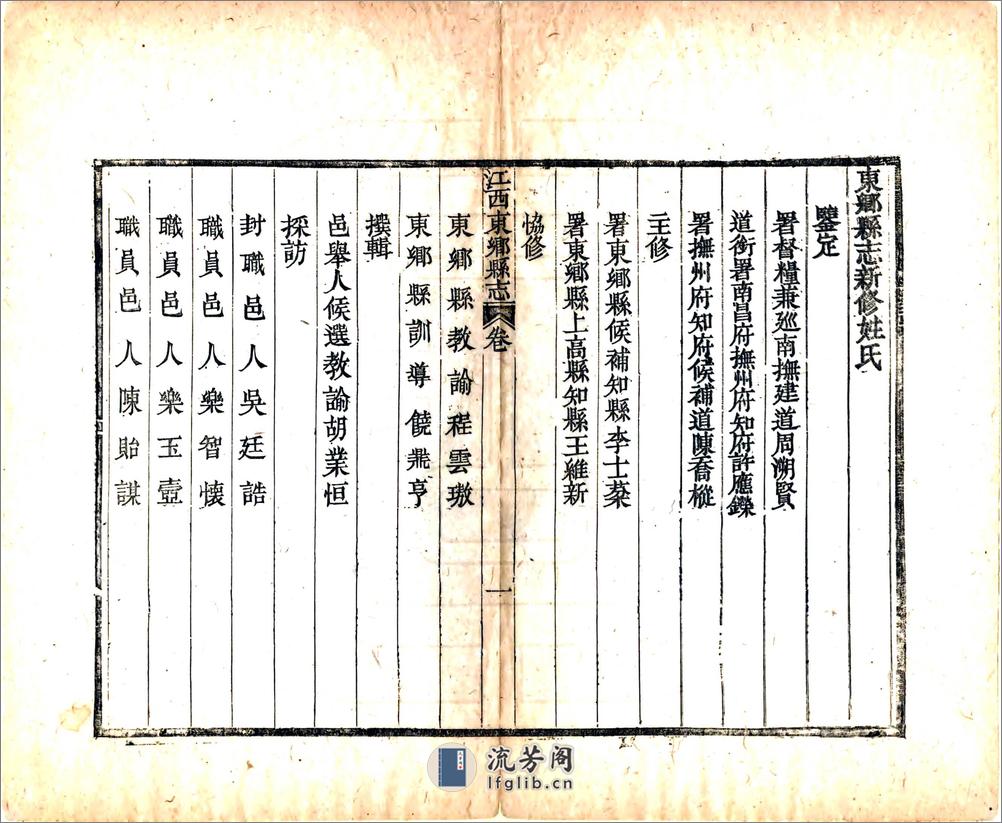 東鄉縣志新修姓氏
鑒定
署督糧兼廵南撫建道周溯賢
道銜署南昌府撫州府知府許應鑅
署撫州府知府候補道陳喬樅
主修
署東鄉縣候補知縣李士棻
署東鄉縣上高縣知縣王維新
恊修
江西東鄉縣志 卷 一
東鄉縣教諭程雲璈
東鄉縣訓導饒鼎亨
撰輯
邑舉人候選教諭胡業恒
採訪
封職邑人吳廷誥
職員邑人樂智懷
職員邑人樂玉壼
職員邑人陳貽謀
流芳阁
lfglib.cn